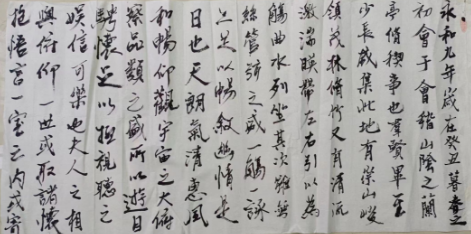 永和九年歲在癸丑暮春之
初會于會稽山陰之蘭
亭脩稧事也群賢畢至
少長咸集此地有崇山峻
領茂林脩竹又有清流
激湍暎帶左右引以為
觴曲水列坐其次雖無
絲管弦之盛一觴一詠
亦足以暢敘幽情是
日也天朗氣清惠風
和暢仰觀宇宙之大俯
察品類之盛所以遊目
騁懷足以極視聽之
娛信可樂也夫人之相
與俯仰一世或取諸懷
抱悟言一室之內或寄